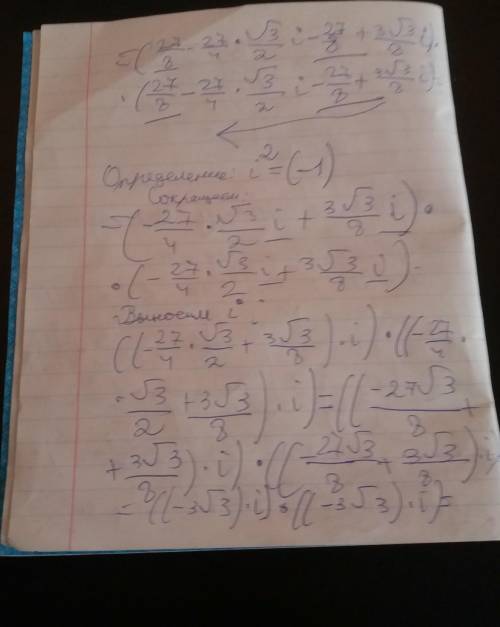 =(27/8 - 27/4 · √3/2 i - 27/8 + 3√3/8 i) ·
· (27/8 - 27/4 · √3/2 i - 27/8 + 3√3/8 i)
Определение: i²=(-1)
Сокращаем:
=(-27/4 · √3/2 i + 3√3/8 i) ·
· (-27/4 · √3/2 i + 3√3/8 i) =
Выносим i:
((-27/4 · √3/2 + 3√3/8) · i) · ((-27/4 ·
· √3/2 + 3√3/8) · i) = ((-27√3/8 +
+ 3√3/8) · i) · ((-27√3/8 + 3√3/8) · i)
= ((-3√3) · i) · ((-3√3) · i) =